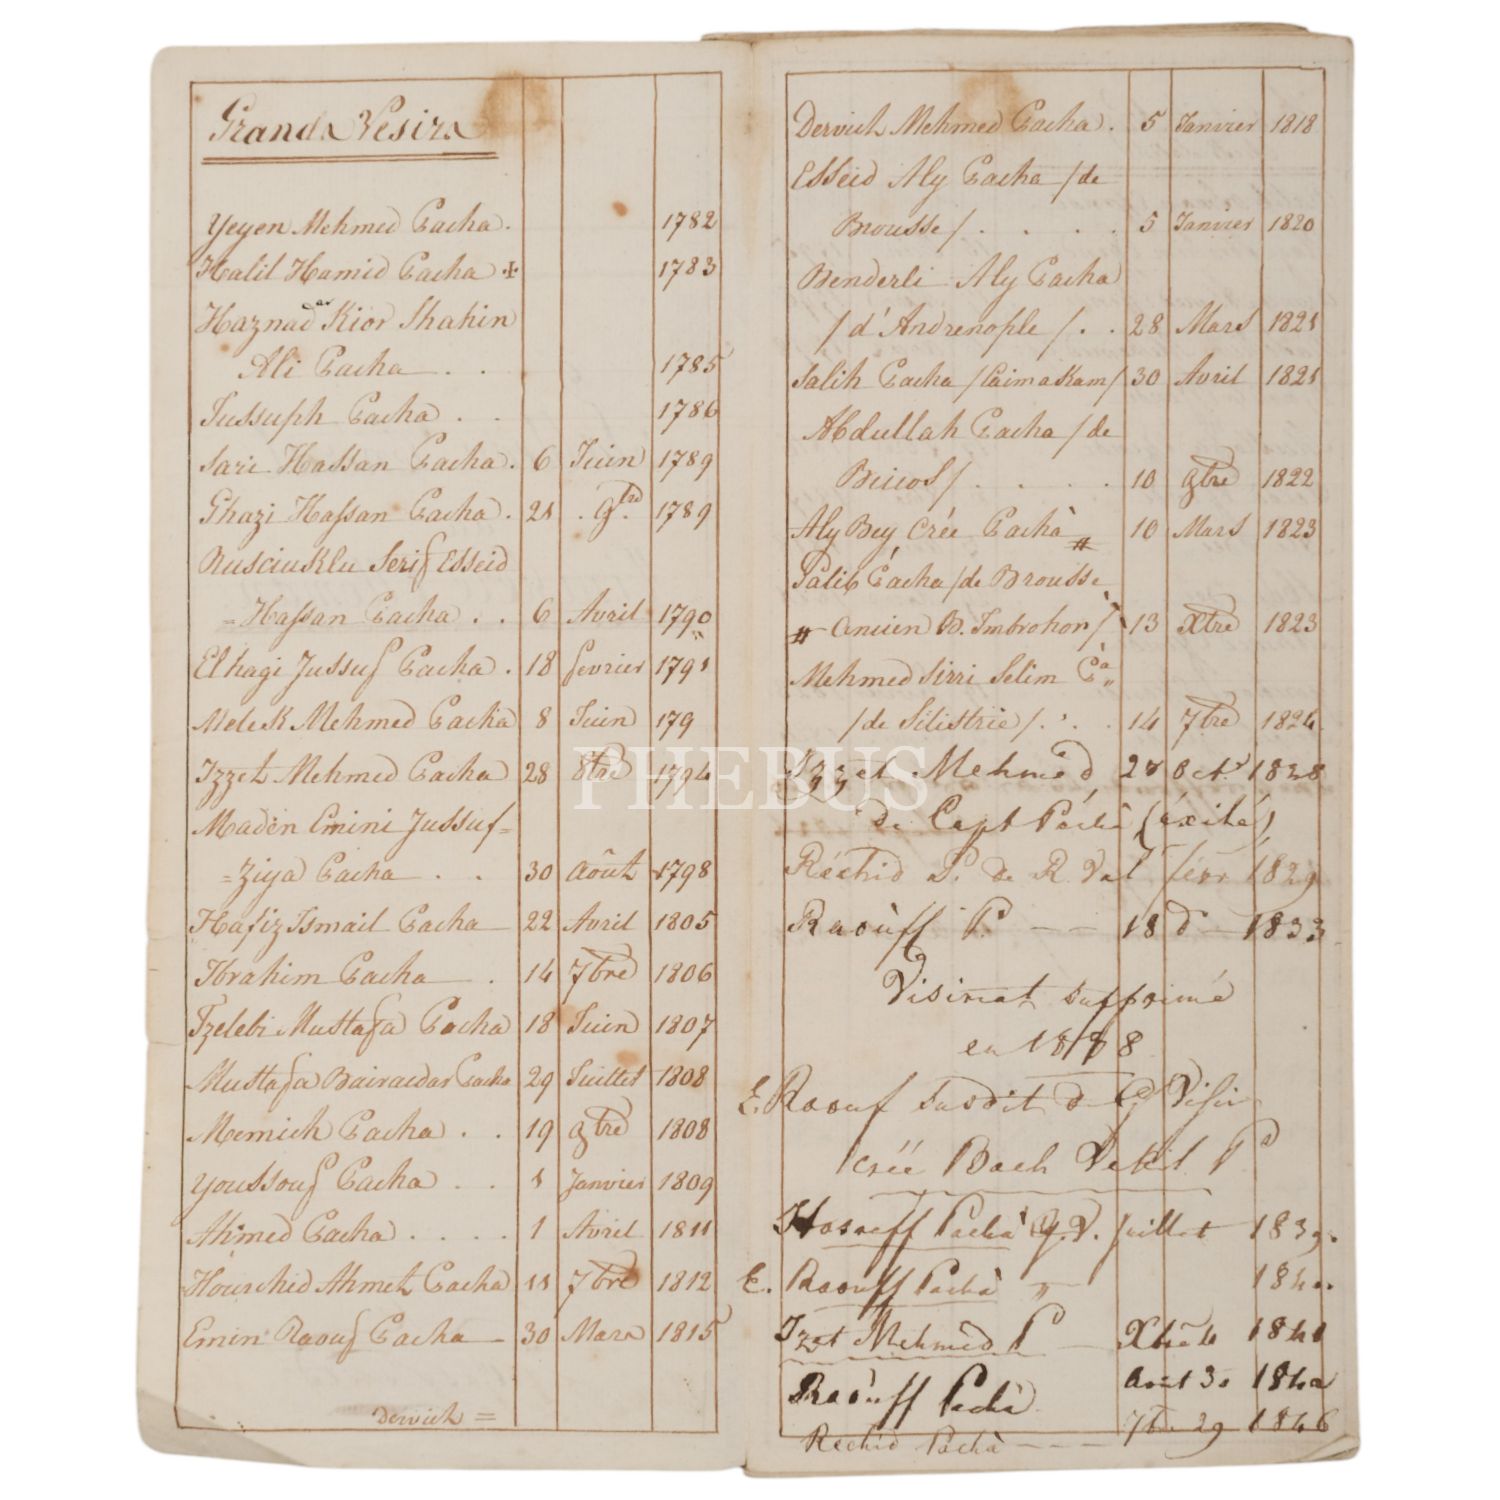 Grands Vesirs
Yeyen Mehmed Pacha. 1782
Halil Hamid Pacha + 1783
Haznadar Kior Shahin
Ali Pacha . . 1785
Jussuph Pacha . . 1786
Sari Hassan Pacha. 6 Juin 1789
Ghazi Hassan Pacha. 21 9bre 1789
Rusciuklu Serif Esseid
=Hassan Pacha . . 6 Avril 1790
Elhagi Jussuf Pacha . 18 fevrier 1791
Melek Mehmed Pacha 8 Juin 179
Izzet Mehmed Pacha 28 8bre 1794
Maden Emini Jussuf=
=Ziya Pacha . . 30 Août 1798
Hafiz Ismail Pacha 22 Avril 1805
Ibrahim Pacha . 14 7bre 1806
Tzelebi Mustafa Pacha 18 Juin 1807
Mustafa Bairacdar Pacha 29 Juillet 1808
Memich Pacha . . 19 9bre 1808
Youssouf Pacha . . 1 Janvier 1809
Ahmed Pacha . . . . 1 Avril 1811
Hourchid Ahmet Pacha 11 7bre 1812
Emin Raouf Pacha 30 Mars 1815
Dervich =
Dervich Mehmed Pacha. 5 Janvier 1818
Esseid Aly Pacha /de
Brousse/ . . . . 5 Janvier 1820
Benderli Aly Pacha
/d'Andrenople/ . . 28 Mars 1821
Salih Pacha /Caimakam/ 30 Avril 1821
Abdullah Pacha /de
/ . . . . 10 9bre 1822
Aly Bey créé Pacha # 10 Mars 1823
Galib Pacha /de Brousse
# ancien B. Imbrohor/ 13 Xbre 1823
Mehmed Sirri Selim Pa
/de Silistrie/ . . 14 7bre 1824
Izzet Mehmed Oct. 1828
de Capt Pacha (éxilé)
Réchid P. de R. Val févr 1829
Raouff P. -- 18 d 1833
Visiriat supprimé
en 1838
E. Raouf susdit d G Visir
créé Bach Vekil P
Hosreff Pacha G.V. Juillet 1839.
E. Raouff Pacha " 1840.
Izzet Mehmed P Xbre 4 1841
Raouff Pacha Aout 30 1842
Rechid Pacha --- 7bre 29 1846
PHEBUS